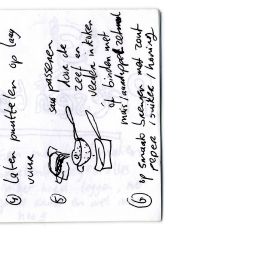 ④ laten pruttelen op laag
vuur
⑤ saus passeren
door de
zeef en
verder inkoken
of binden met
maïs/aardappelzetmeel
⑥ op smaak brengen met zout
peper / suiker / honing